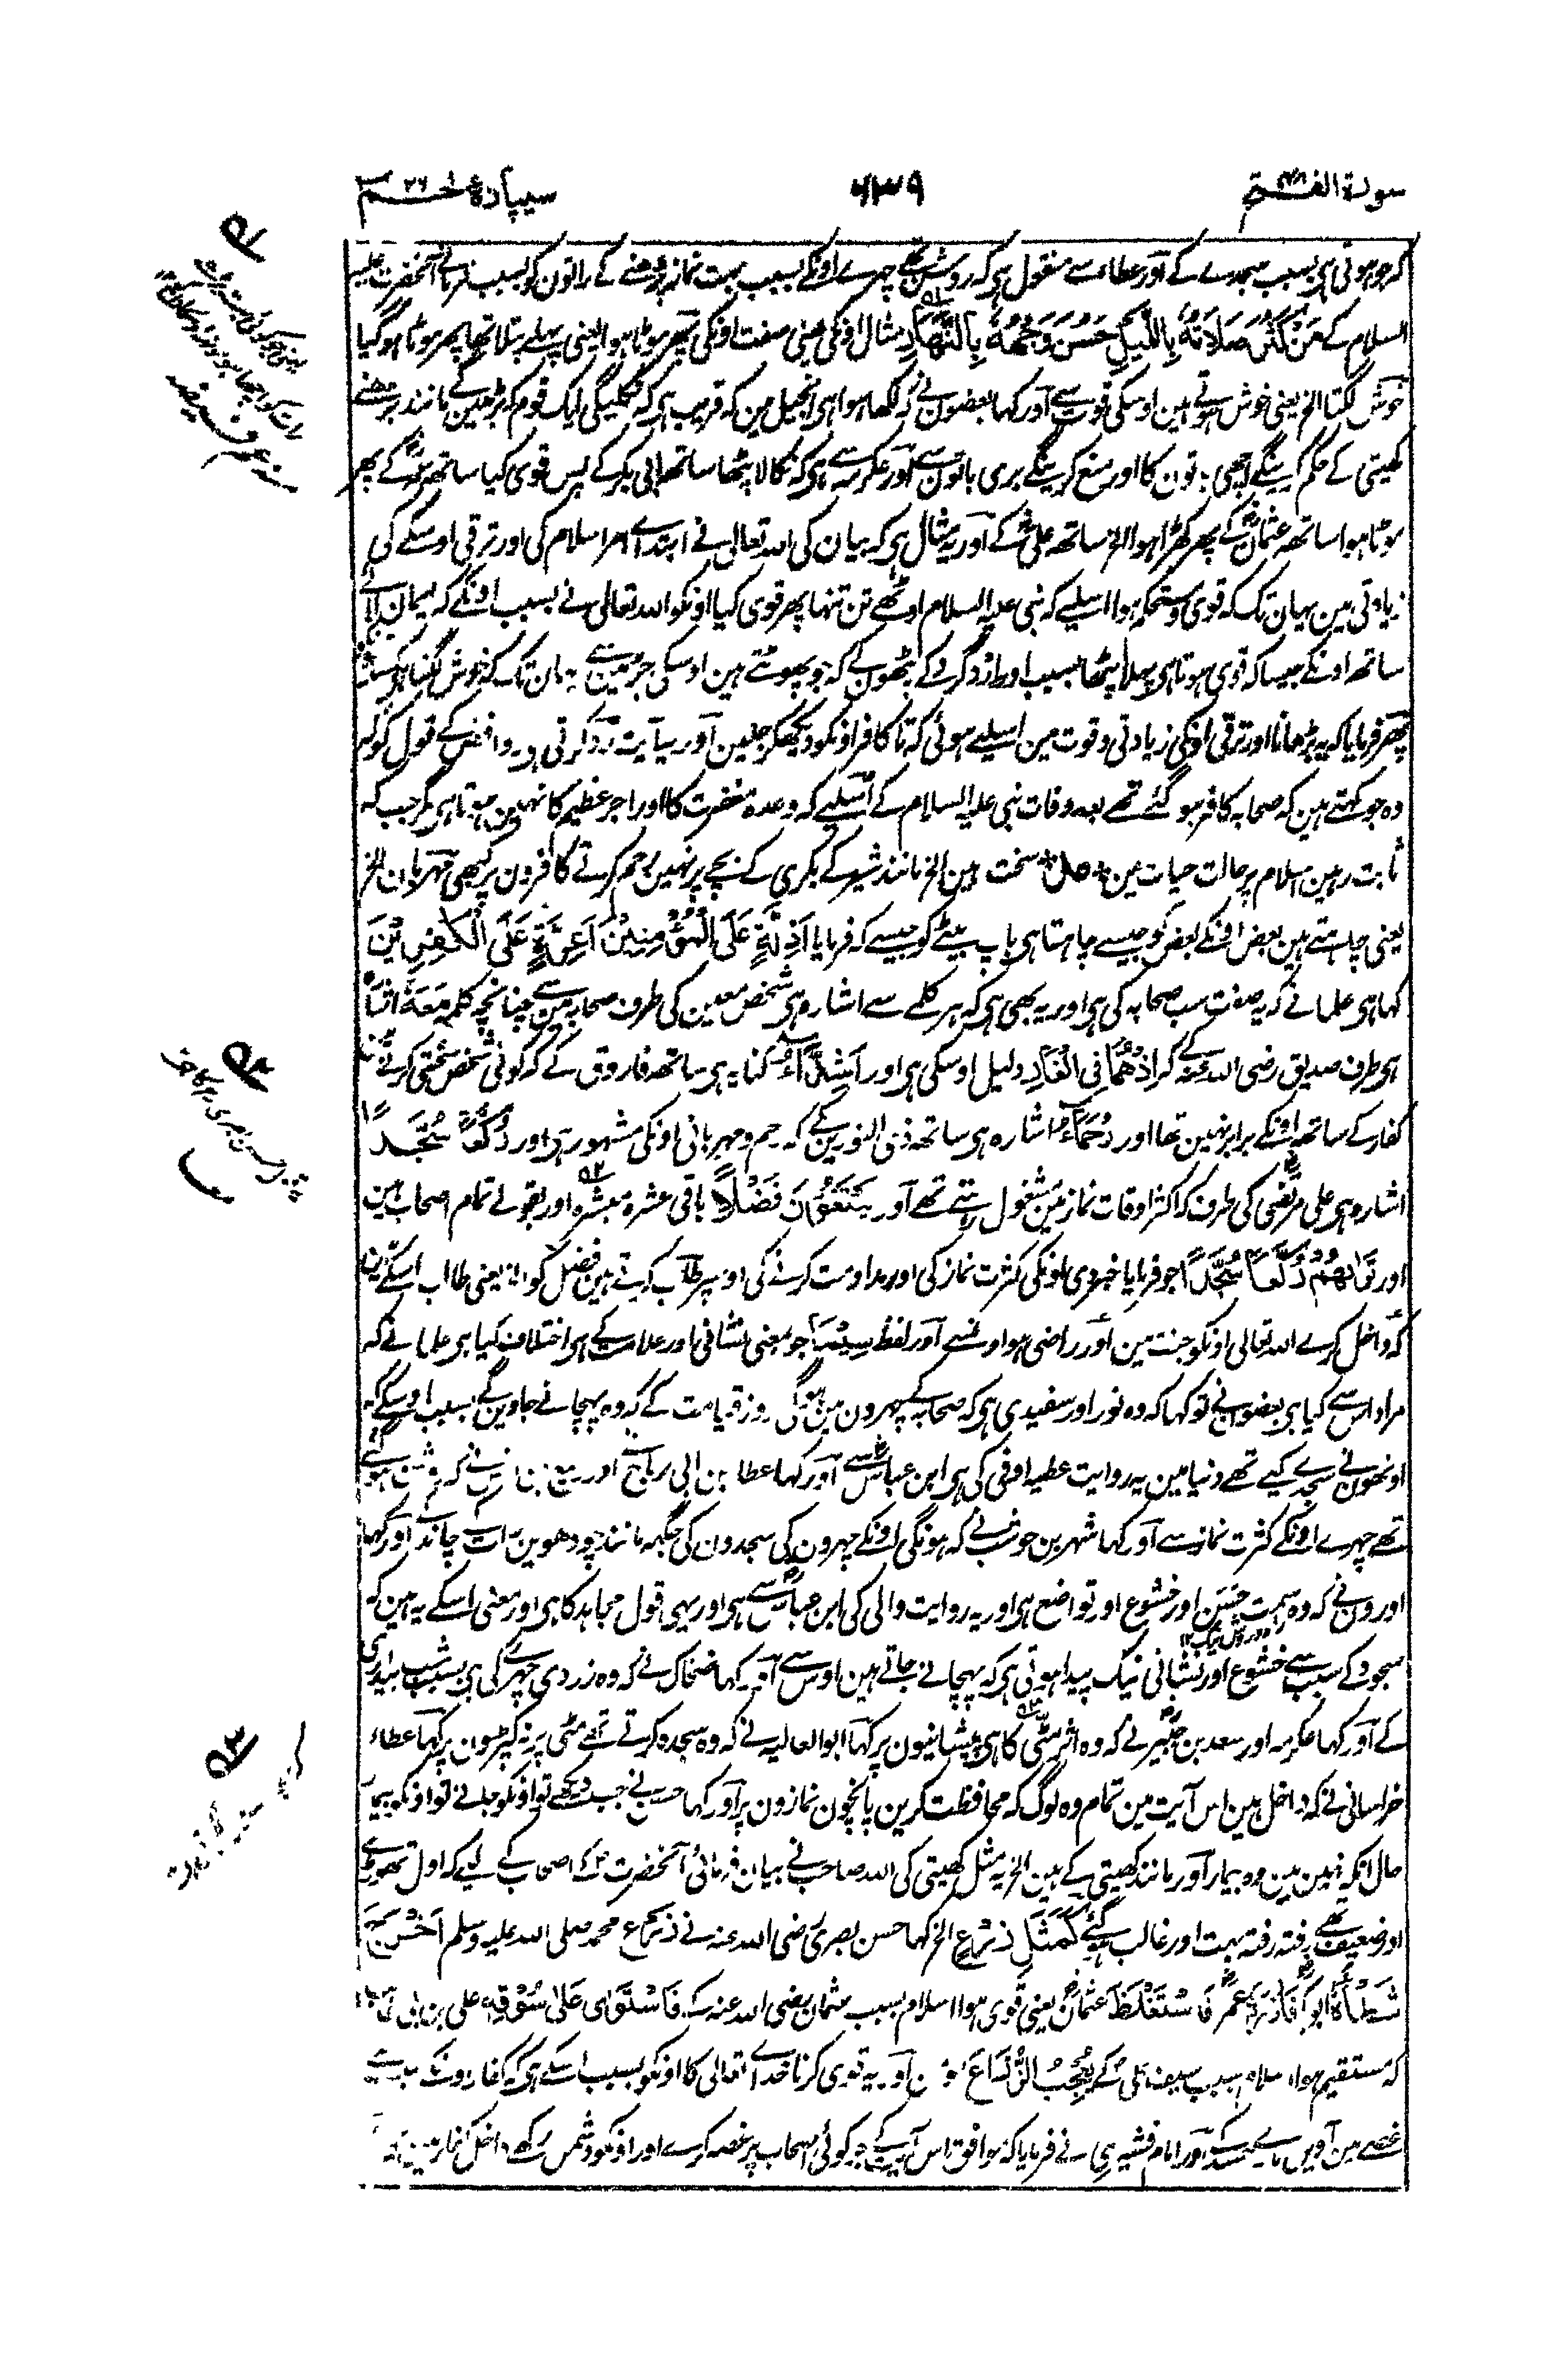 سورة الفتح ۴۸
۶۳۹
سیپارهٔ حٰم ۲۶
کہ جو ہوتی ہی بسبب سجدے کے اور عطاء سے منقول ہی کہ روشن تھے چہرے اونکے بسبب بہت نماز پڑھنے کے راتون کو بسبب فرمانے آنحضرت علیہ
السلام کے مَنْ كَثُرَ صَلَاتُهُ بِاللَّيْلِ حَسُنَ وَجْهُهُ بِالنَّهَارِ مثال اونکی یعنی صفت اونکی پھر موٹا ہوا یعنی پہلے پتلا تھا پھر موٹا ہو گیا
خوش لگتا الخ یعنی خوش ہوتے ہین اوسکی قوت سے اور کہا بعضون نے کہ لکھا ہوا ہی انجیل مین کہ قریب ہی کہ نکلیگی ایک قوم کہ بڑھینگے مانند بڑھنے
کھیتی کے حکم کرینگے اچھی باتون کا اور منع کرینگے بری باتون سے اور عکرمہ سے ہی کہ نکالا پٹھا ساتھ ابی بکر کے پس قوی کیا ساتھ عمر کے پھر
موٹا ہوا ساتھ عثمان کے پھر کھڑا ہوا الخ ساتھ علی کے اور یہ مثال ہی کہ بیان کی اللہ تعالی نے ابتداے امر اسلام کی اور ترقی اوسکے کی
زیادتی مین یہان تک کہ قوی و مستحکم ہوا اسلیے کہ نبی علیہ السلام اوٹھے تن تنہا پھر قوی کیا اونکو اللہ تعالی نے بسبب اونکے کہ ایمان لائے
ساتھ اونکے جیسا کہ قوی ہوتا ہی پہلا پٹھا بسبب اور ارد گرد کے پٹھون کے کہ جو پھوٹتے ہین اوسکی جڑ مین سے یہان تک کہ خوش لگتا ہی
پھر فرمایا کہ یہ بڑھانا اور ترقی اونکی زیادتی و قوت مین اسلیے ہوئی کہ تا کافر اونکو دیکھکر جلین اور یہ آیت رد کرتی ہی روافض کے قول کو کہ
وہ جو کہتے ہین کہ صحابہ کافر ہو گئے تھے بعد وفات نبی علیہ السلام کے اسلیے کہ وعدہ مغفرت کا اور اجر عظیم کا نہین ہوتا ہی مگر جب کہ
ثابت رہین اسلام پر حالت حیات مین سخت ہین الخ مانند شیر کے بکری کے بچے پر نہین رحم کرتے کافرون پر کبھی مہربان الخ
یعنی چاہتے ہین بعض اونکے بعض کو جیسے چاہتا ہی باپ بیٹے کو جیسے کہ فرمایا اَذِلَّةٍ عَلَى الْمُؤْمِنِيْنَ اَعِزَّةٍ عَلَى الْكٰفِرِيْنَ
کہا ہی علما نے کہ یہ صفت سب صحابہ کی ہی اور یہ بھی ہی کہ ہر کلمے سے اشارہ ہی شخص معین کی طرف صحابہ مین سے چنانچہ کلمہ مَعَهٗ اشارہ
ہی طرف صدیق رضی اللہ عنہ کے کہ اِذْ هُمَا فِي الْغَارِ دلیل اوسکی ہی اور اَشِدَّاءُ کنایہ ہی ساتھ فاروق کے کہ کوئی شخص سختی کرنے مین
کفار کے ساتھ اونکے برابر نہین تھا اور رُحَمَاءُ اشارہ ہی ساتھ ذی النورین کے کہ رحم و مہربانی اونکی مشہور ہی اور رُكَّعًا سُجَّدًا
اشارہ ہی علی مرتضی کی طرف کہ اکثر اوقات نماز مین مشغول رہتے تھے اور يَبْتَغُوْنَ فَضْلًا باقی عشرہ مبشرہ اور بقولے تمام اصحاب ہین
اور تَرٰىهُمْ رُكَّعًا سُجَّدًا جو فرمایا خبر دی اونکی کثرت نماز کی اور مداومت کرنے کی اوسپر طلب کرتے ہین فضل کو الخ یعنی طالب اسکے ہین
کہ داخل کرے اللہ تعالی اونکو جنت مین اور راضی ہو اونسے اور لفظ سِيْمَا جو بمعنی نشانی اور علامت کے ہی اختلاف کیا ہی علما نے کہ
مراد اس سے کیا ہی بعضون نے تو کہا کہ وہ نور اور سفیدی ہی کہ صحابہ کے چہرون مین ہوگی روز قیامت کے کہ وہ پہچانے جاوینگے بسبب اوسکے کہ
اونھون نے سجدے کیے تھے دنیا مین یہ روایت عطیہ اوفی کی ہی ابن عباس سے اور کہا عطا بن ابی رباح اور ربیع بن انس نے کہ روشن ہوئے
تھے چہرے اونکے کثرت نماز سے اور کہا شہر بن حوشب نے کہ ہونگی اونکے چہرون کی سجدون کی جگہہ مانند چودھوین رات چاند کے اور کہا
اورون نے کہ وہ سمت حسن اور خشوع اور تواضع ہی اور یہ روایت والی کی ابن عباس سے ہی اور یہی قول مجاہد کا ہی اور معنی اسکے یہ ہین کہ
سجود کے سبب سے خشوع اور نشانی نیک پیدا ہوتی ہی کہ پہچانے جاتے ہین اوس سے اور کہا ضحاک نے کہ وہ زردی چہرے کی ہی بسبب شب بیداری
کے اور کہا عکرمہ اور سعد بن جبیر نے کہ وہ اثر مٹی کا ہی پیشانیون پر کہا ابو العالیہ نے کہ وہ سجدہ کرتے تھے مٹی پر نہ کپڑون پر کہا عطاء
خراسانی نے کہ داخل ہین اس آیت مین تمام وہ لوگ کہ محافظت کرین پانچون نمازون پر اور کہا حسن نے جب دیکھے تو اونکو جانے تو اونکو بیمار
حال انکہ نہین ہین وہ بیمار اور مانند کھیتی کے ہین الخ یہ مثل کھیتی کی اللہ صاحب نے بیان فرمائی آنحضرت کے اصحاب کے لیے کہ اول تھوڑے
اور ضعیف تھے رفتہ رفتہ بہت اور غالب ہو گئے كَمَثَلِ زَرْعٍ الخ کہا حسن بصری رضی اللہ عنہ نے زرع محمد صلی اللہ علیہ وسلم اَخْرَجَ
شَطْأَهٗ ابو بکر فَاٰزَرَهٗ عمر فَاسْتَغْلَظَ عثمان یعنی قوی ہوا اسلام بسبب عثمان رضی اللہ عنہ کے فَاسْتَوٰى عَلٰى سُوْقِهٖ علی بن ابی طالب
کہ مستقیم ہوا اسلام بسبب سیف علی کے يُعْجِبُ الزُّرَّاعَ اور یہ قوی کرنا خداے تعالی کا اونکو بسبب اسکے ہی کہ کفار
غصے مین آوین اور امام قشیری نے فرمایا کہ موافق اس آیت کے جو کوئی اصحاب پر غصہ کرے اور اونکو دشمن رکھے داخل کفار